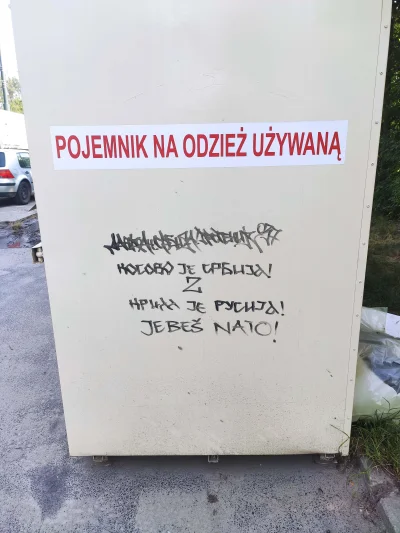 POJEMNIK NA ODZIEŻ UŻYWANĄ
КОСОВО ЈЕ СРБИЈА!
Z
КРИМ ЈЕ РУСИЈА!
JEBEŠ NATO!